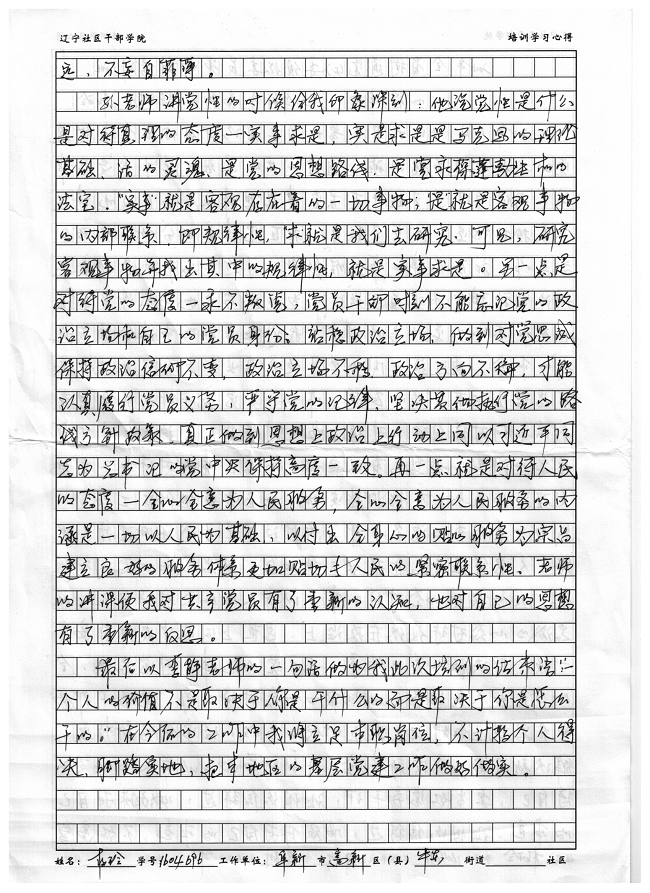 辽宁社区干部学院 培训学习心得
远，不妄自菲薄。
孙老师讲党性的时候给我印象深刻：他说党性是什么
是对待真理的态度—实事求是，实是求是是马克思的理论
基础、活的灵魂，是党的思想路线，是党永葆
法宝。“实事”就是客观存在着的一切事物；“是”就是客观事物
的内部联系，即规律性，“求”就是我们去研究。可见，研究
客观事物并找出其中的规律性，就是实事求是。另一点是
对待党的态度—永不叛党，党员干部时刻不能忘记党的政
治立场和自己的党员身份。站稳政治立场，做到对党忠诚
保持政治信仰不变，政治立场不移，政治方向不偏，才能
认真履行党员义务，严守党的纪律，坚决贯彻执行党的路
线方针政策，真正做到思想上政治上行动上同以习近平同
志为总书记的党中央保持高度一致。再一点就是对待人民
的态度—全心全意为人民服务，全心全意为人民服务的内
涵是一切以人民为基础，以付出全身心的服务为宗旨
建立良好的服务体系更加贴切与人民的紧密联系性。老师
的讲课使我对共产党员有了重新的认知，也对自己的思想
有了重新的反思。
最后以李静老师的一句话做为我此次培训的结束语：“一
个人的价值不是取决于你是干什么的而是取决于你是怎么
干的。”在今后的工作中我将立足本职岗位，不计较个人得
失，脚踏实地，把本地区的基层党建工作做好做实。
姓名： 学号1604696 工作单位：阜新 市 高新 区（县） 街道 社区